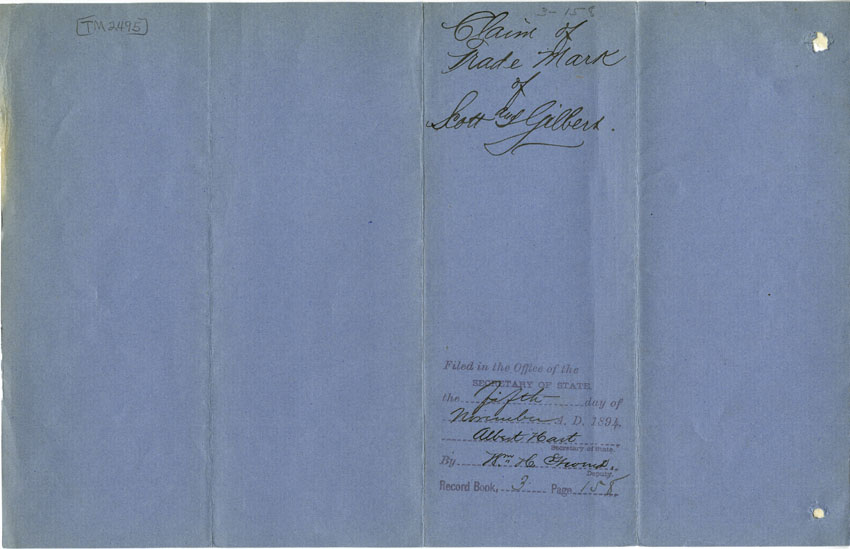 TM2495
3-158
Claim of
Trade Mark
of
Scott and Gilbert.
Filed in the Office of the
SECRETARY OF STATE
the fifth day of
November A. D. 1894
Albert Hart
Secretary of State.
By Wm. H.
Deputy.
Record Book, 3 Page 158